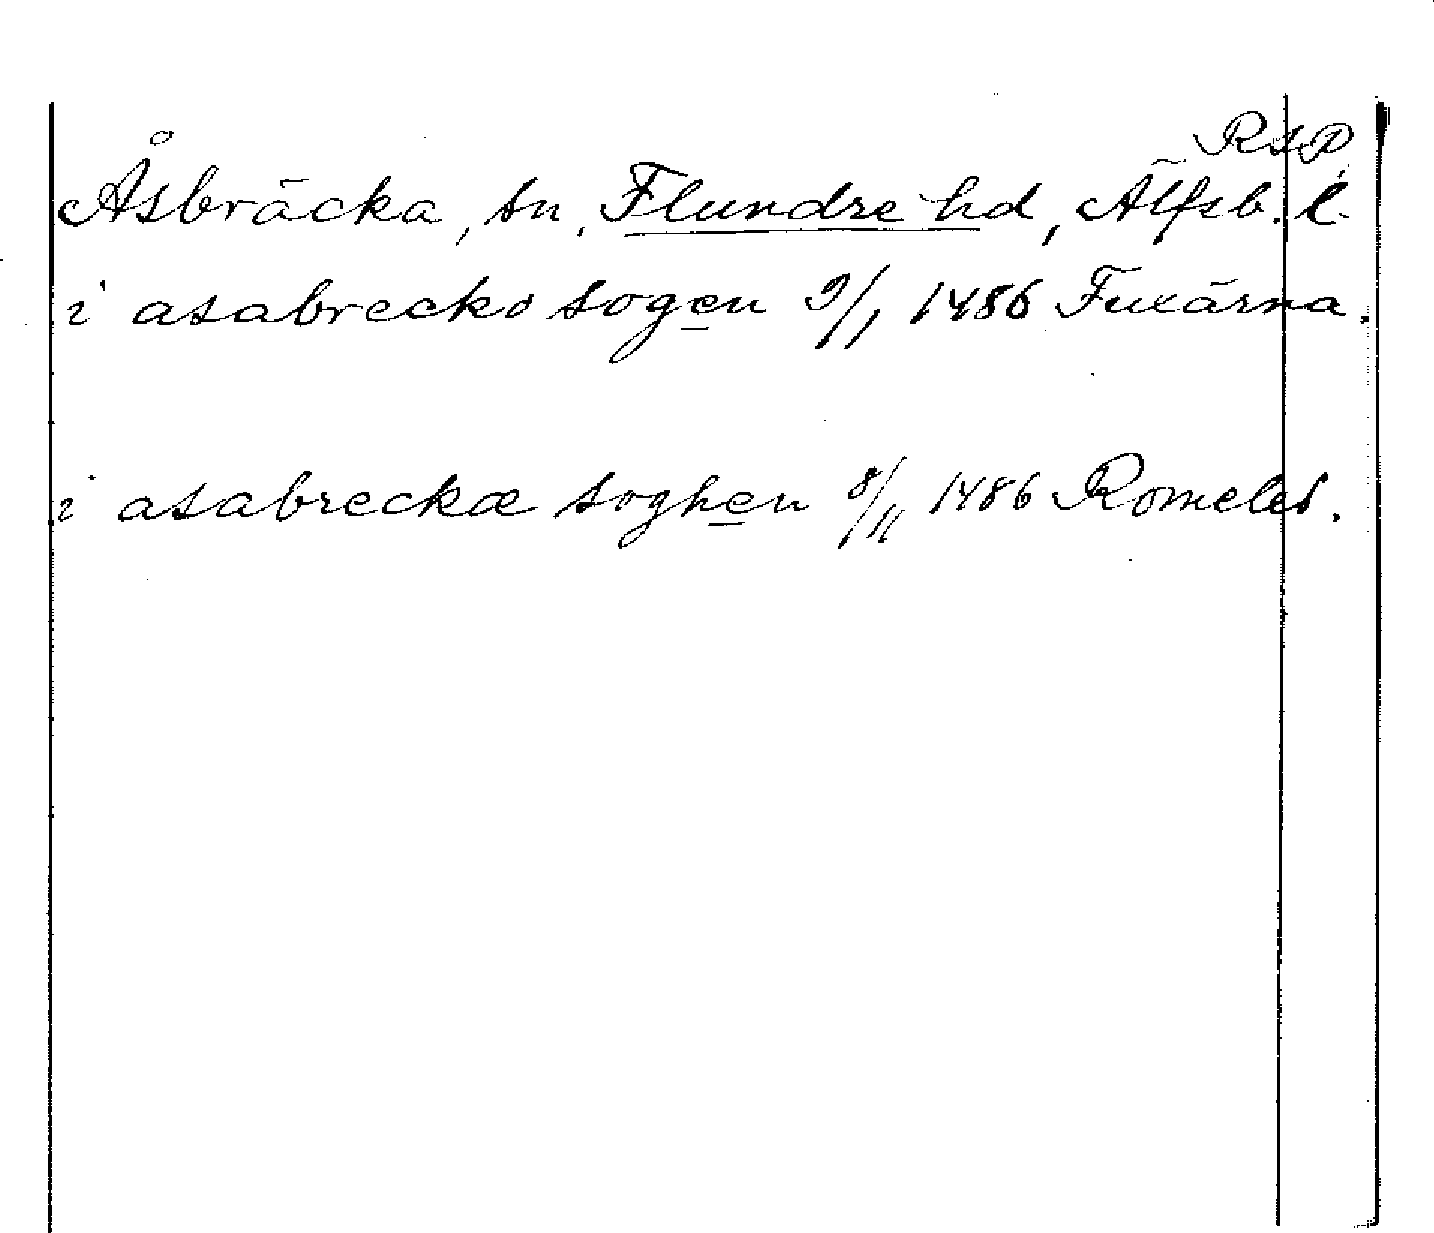 RAP
Åsbräcka, sn, Flundre hd, Älfsb. l.
i asabrecko sogen 9/1 1486 Fuxärna.
i asabreckæ soghen 8/11 1486 Romeled.